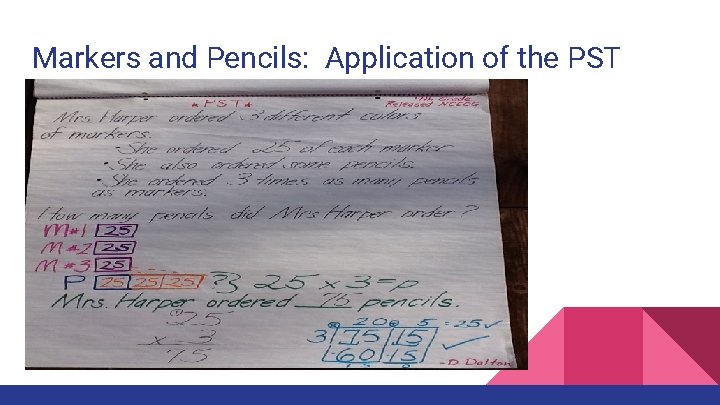 Markers and Pencils: Application of the PST
*PST*
4th Grade
Released NCEOG
Mrs. Harper ordered 3 different colors
of markers.
• She ordered 25 of each marker.
• She also ordered some pencils.
• She ordered 3 times as many pencils
as markers.
How many pencils did Mrs. Harper order?
M#1 25
M#2 25
M#3 25
P 25 25 25 ?} 25 x 3 = p
Mrs. Harper ordered 75 pencils.
25
x 3
75
20 5 = 25 ✓
3 75 15
-60 -15
-D. Dalton